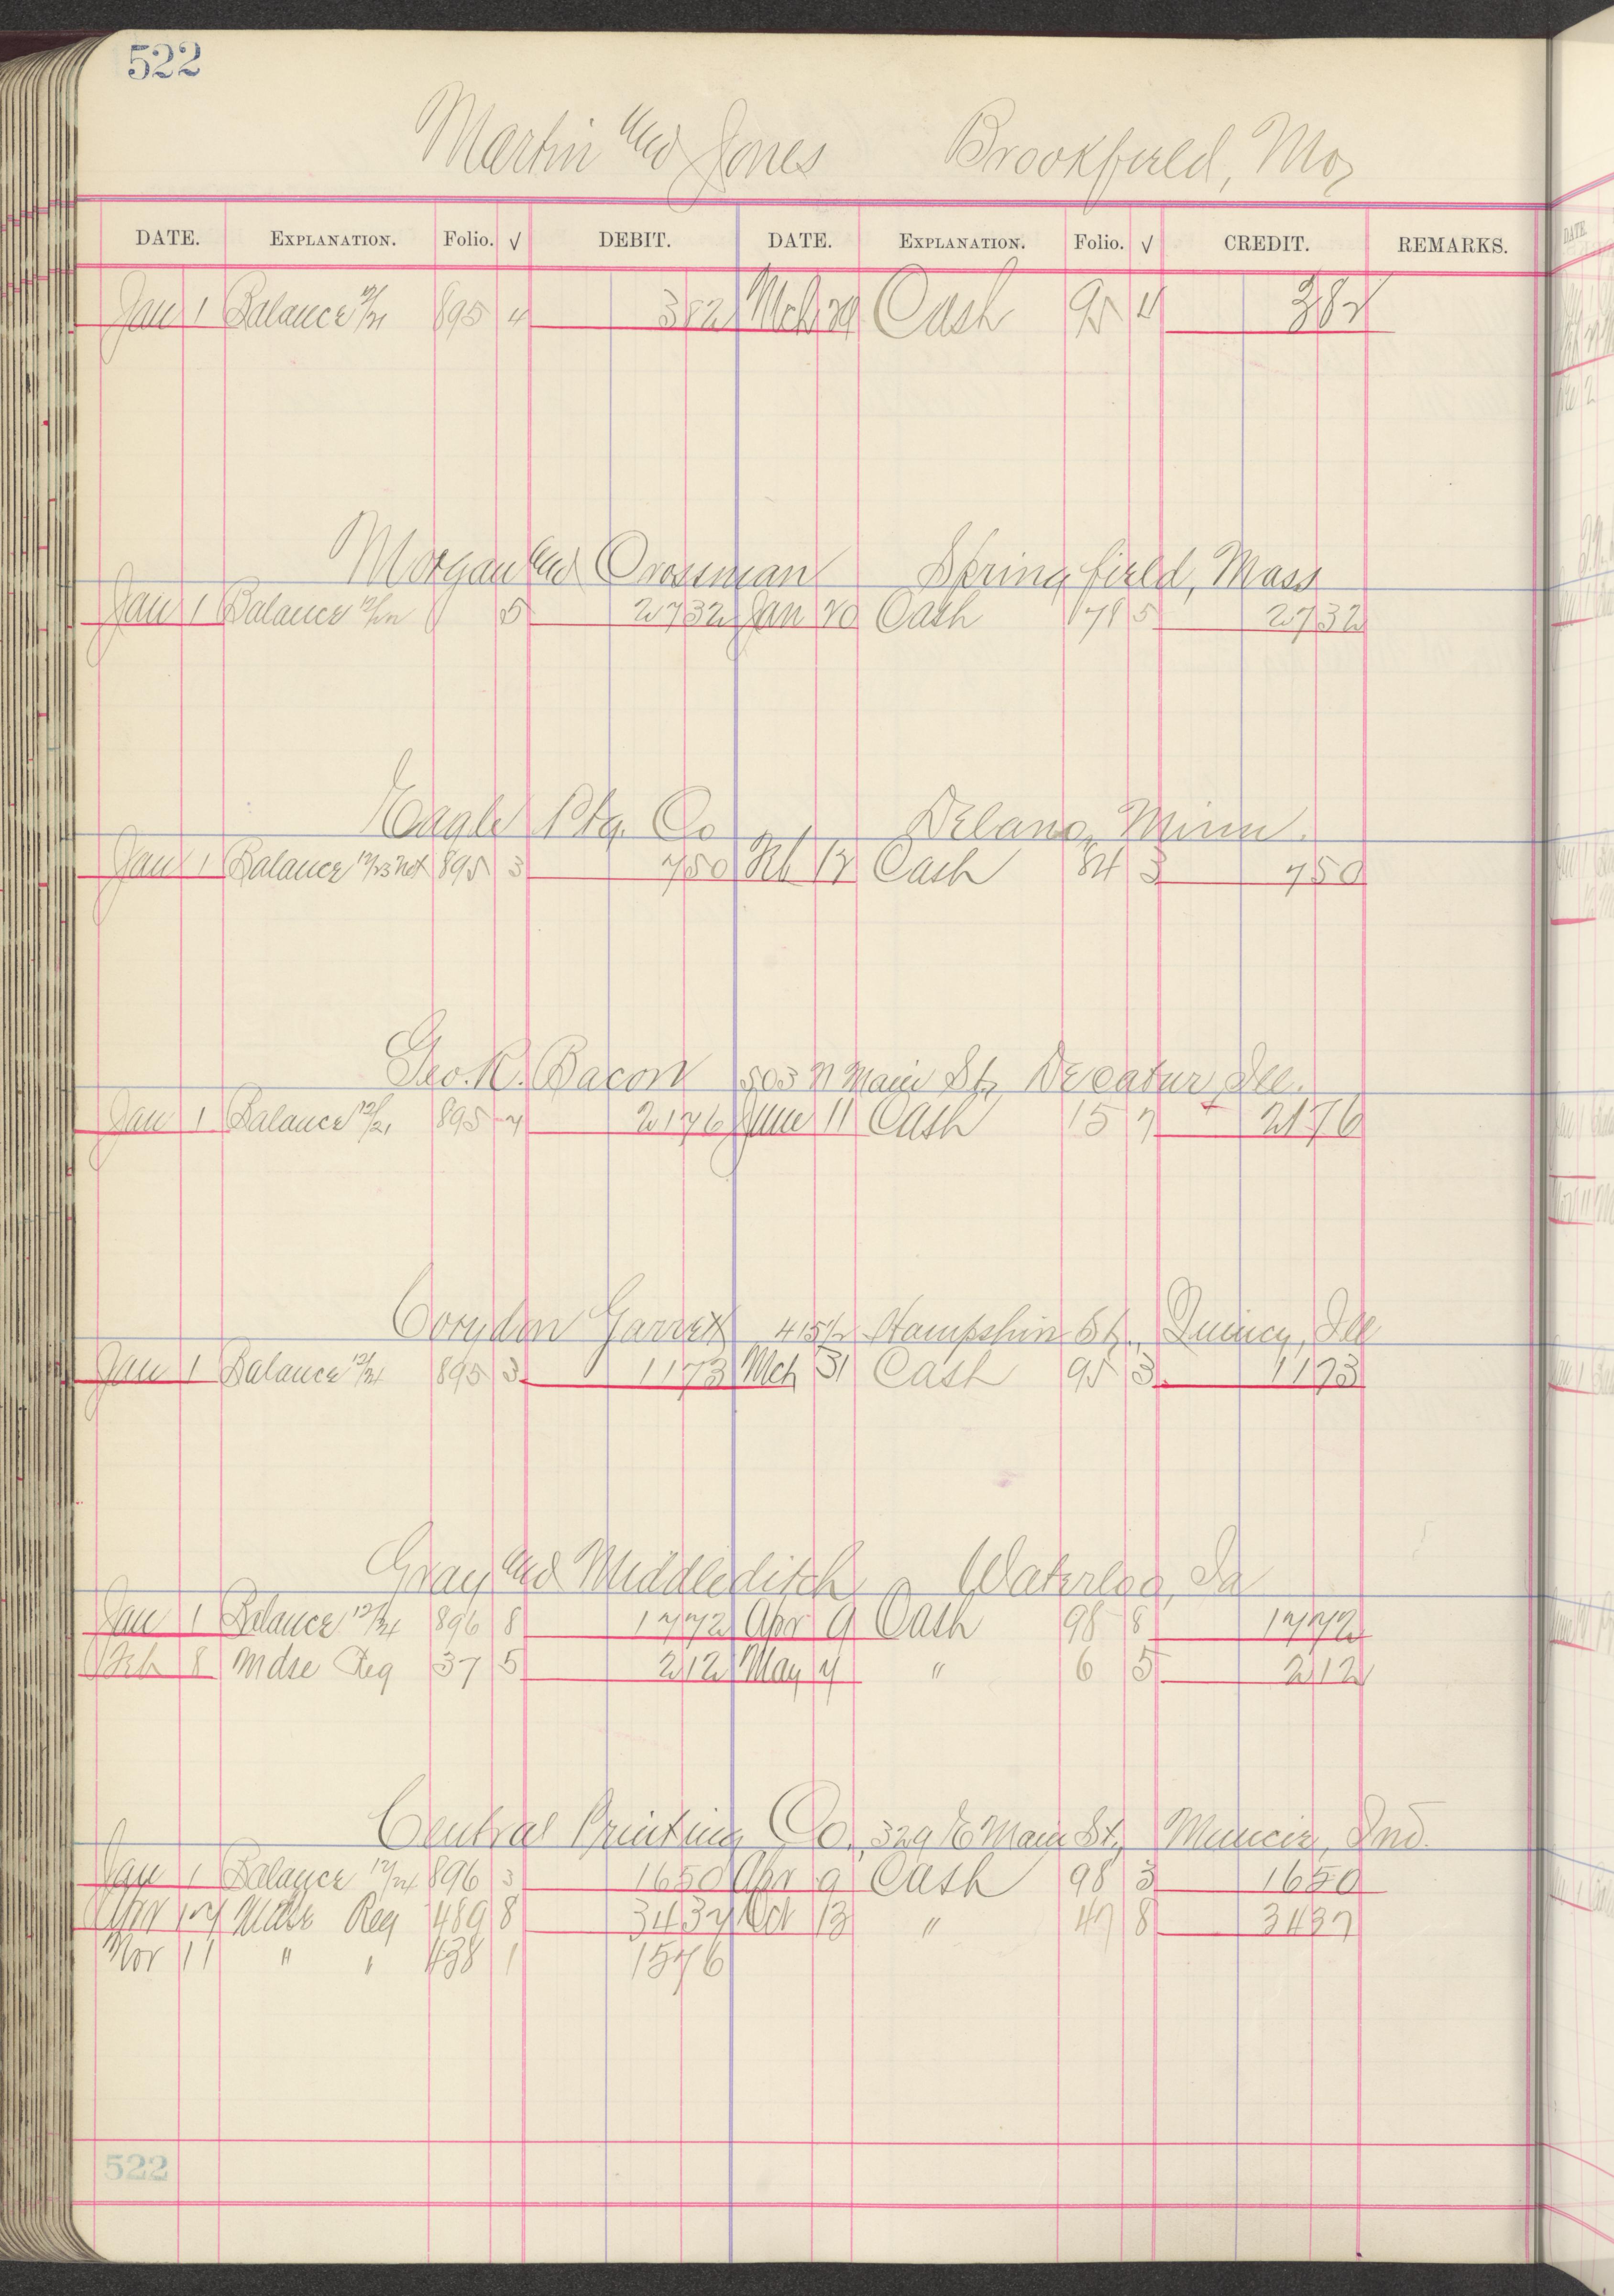 522
Martin and Jones Brookfield, Mo,
DATE. EXPLANATION. Folio. √ DEBIT. DATE. EXPLANATION. Folio. √ CREDIT. REMARKS.
Jan 1 Balance 12/31 895 4 382 Mch 29 Cash 95 4 382
Morgan and Crossman Springfield, Mass
Jan 1 Balance 5 2732 Jan 20 Cash 78 5 2732
Eagle Ptg. Co Delano, Minn.
Jan 1 Balance 12/23 Net 895 3 750 Feb 12 Cash 84 3 750
Geo. R. Bacon 503 N Main St, Decatur, Ill.
Jan 1 Balance 12/21 895 7 2176 June 11 Cash 15 7 2176
Corydon Garrett 415 1/2 Hampshire St., Quincy, Ill
Jan 1 Balance 12/21 895 3 1173 Mch 31 Cash 95 3 1173
Gray and Middleditch Waterloo, Ia
Jan 1 Balance 12/24 896 8 1772 Apr 9 Cash 98 8 1772
Feb 8 Mdse Reg 37 5 212 May 4 " 6 5 212
Central Printing Co, 329 E Main St, Muncie, Ind.
Jan 1 Balance 12/24 896 3 1650 Apr 9 Cash 98 3 1650
17 Mdse Reg 489 8 3437 Oct 13 " 47 8 3437
Nov 11 " " 438 1 1576
522